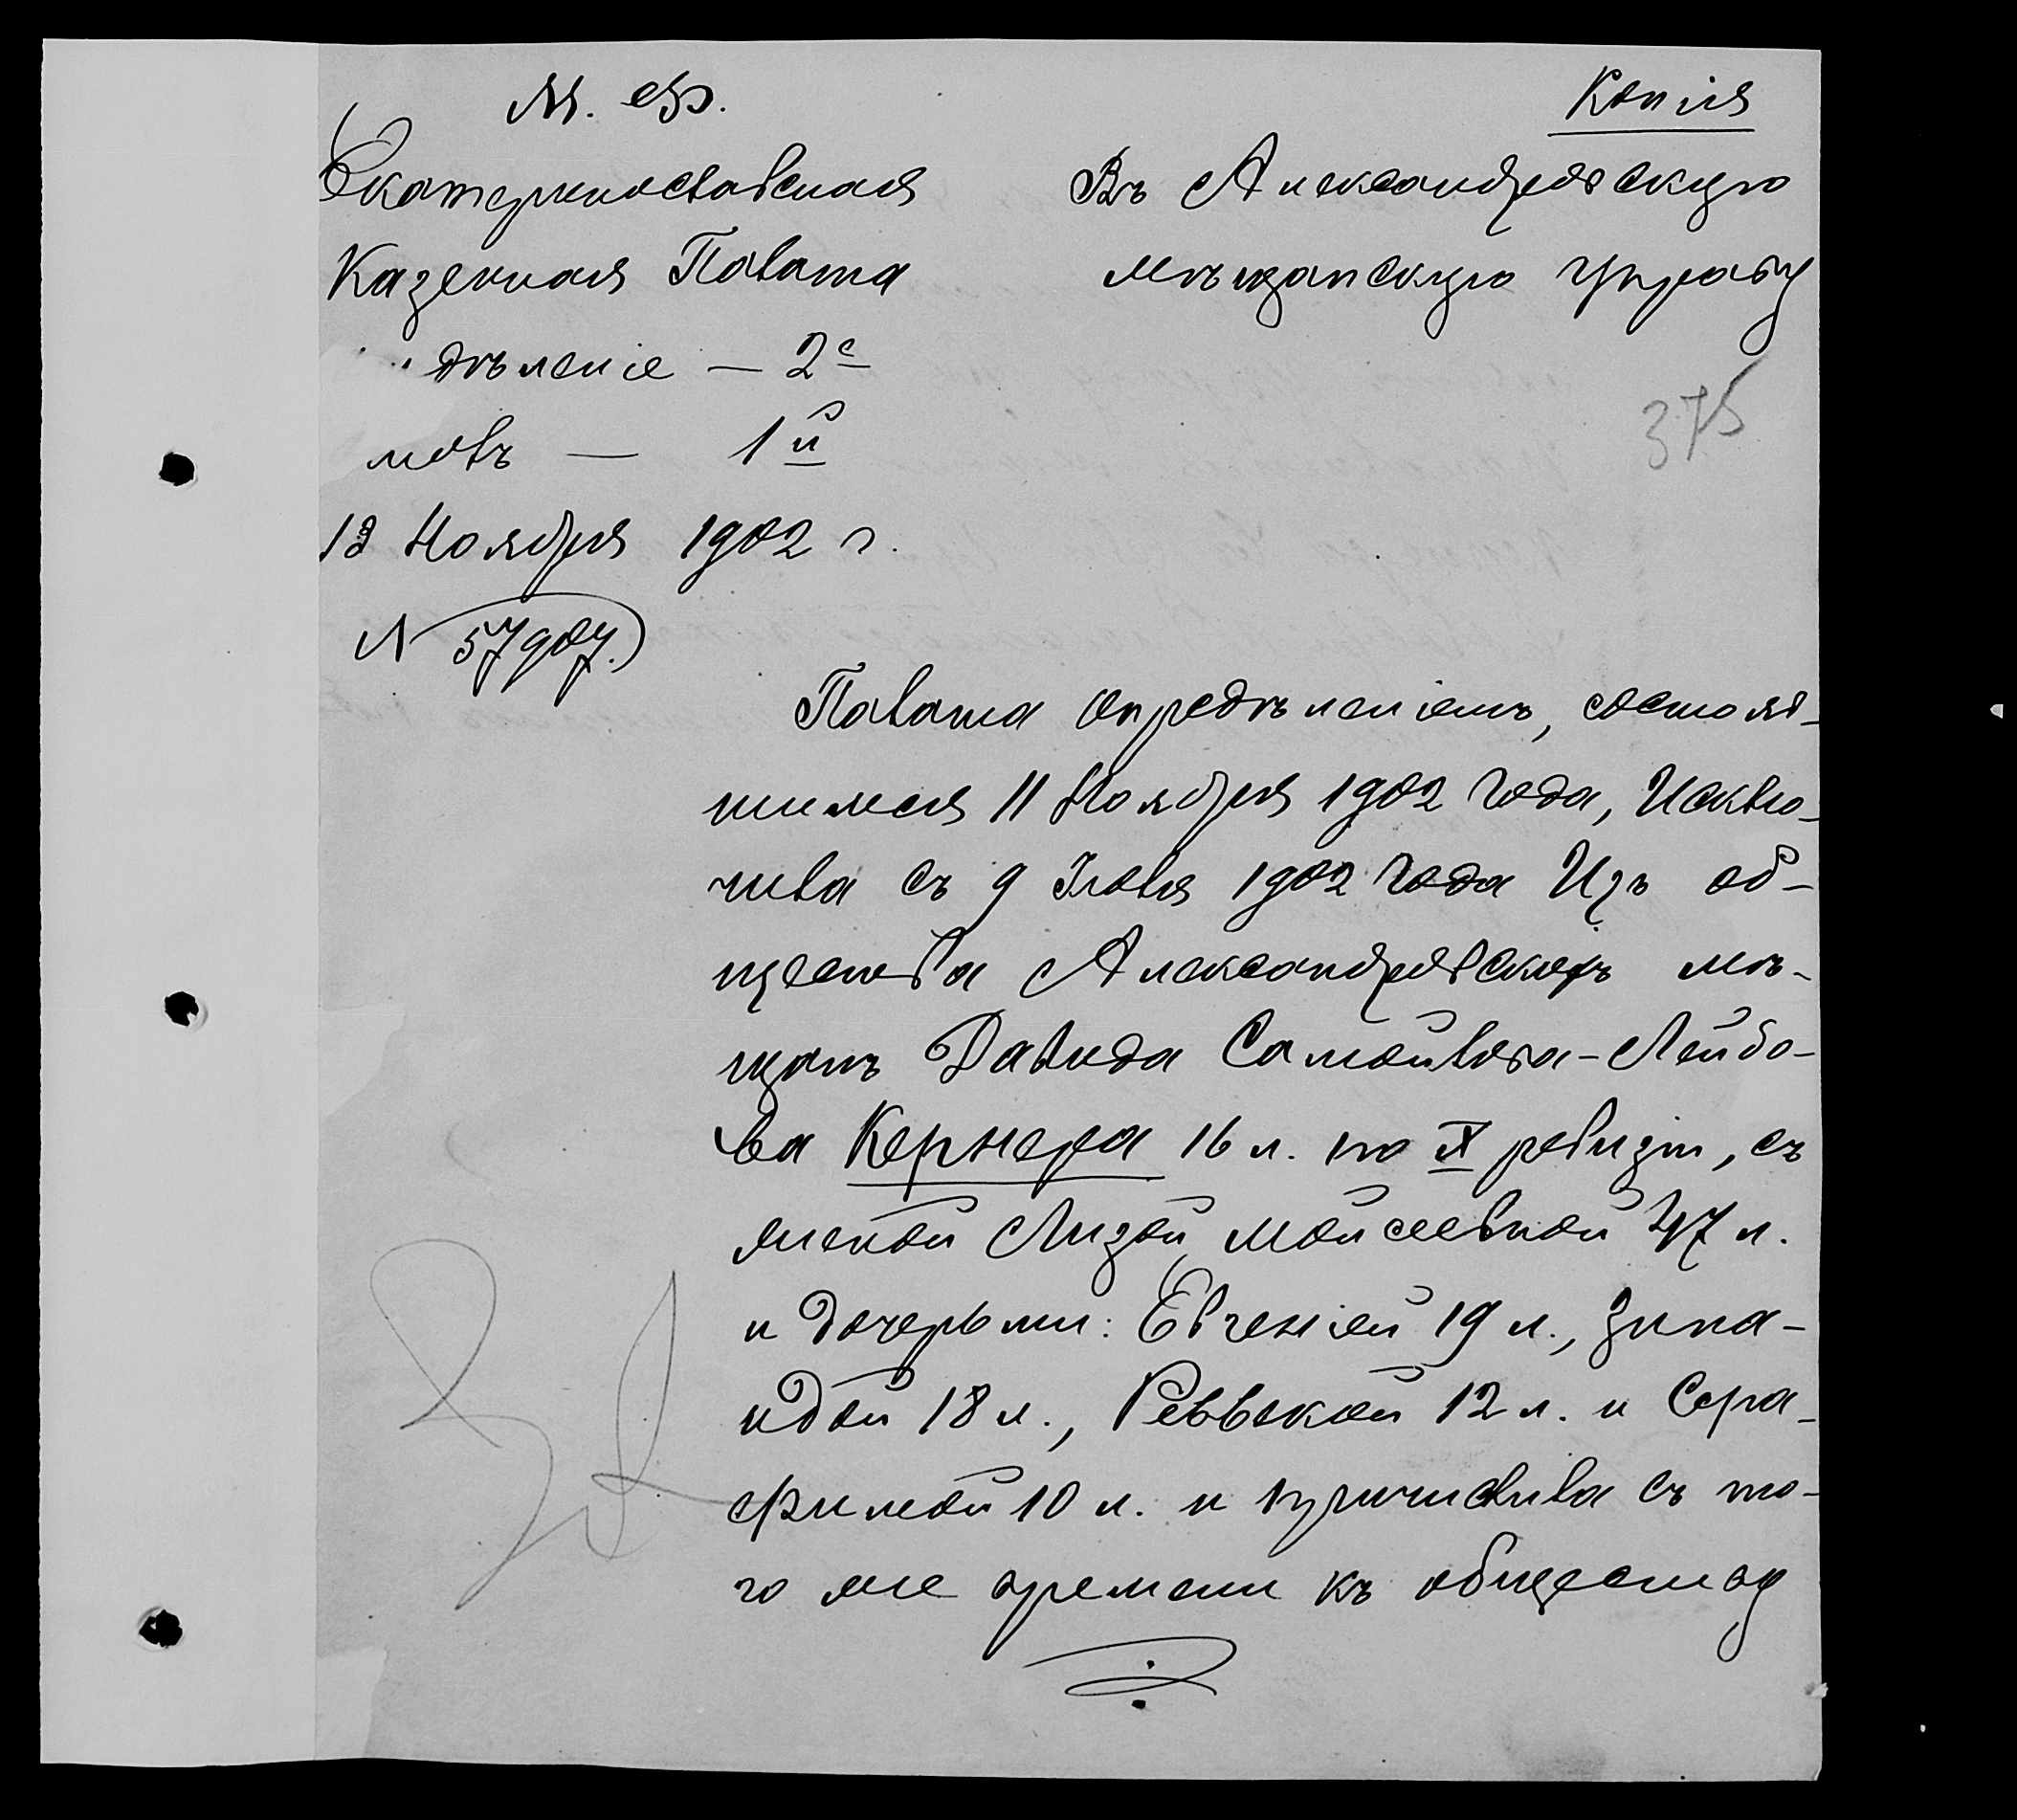 М. Ф.
Копия
Екатеринославская
Казенная Палата
дѣленіе — 2е
ловъ — 1й
Ноября 1902 г.
№ 57907.
Въ Александровскую
мѣщанскую управу
375
Палата опредѣленіемъ, состояв-
шимся 11 Ноября 1902 года, исклю-
чила съ 9 Іюля 1902 года изъ об-
щества Александровскихъ мѣ-
щанъ Давида Самойлова-Лейбо-
ва Кернера 16 л. по X ревизіи, съ
женой Лизой Мойсеевной 47 л.
и дочерьми: Евгенией 19 л., Зина-
идой 18 л., Реввекой 12 л. и Сера-
фимой 10 л. и причислила съ то-
го же времени къ обществу